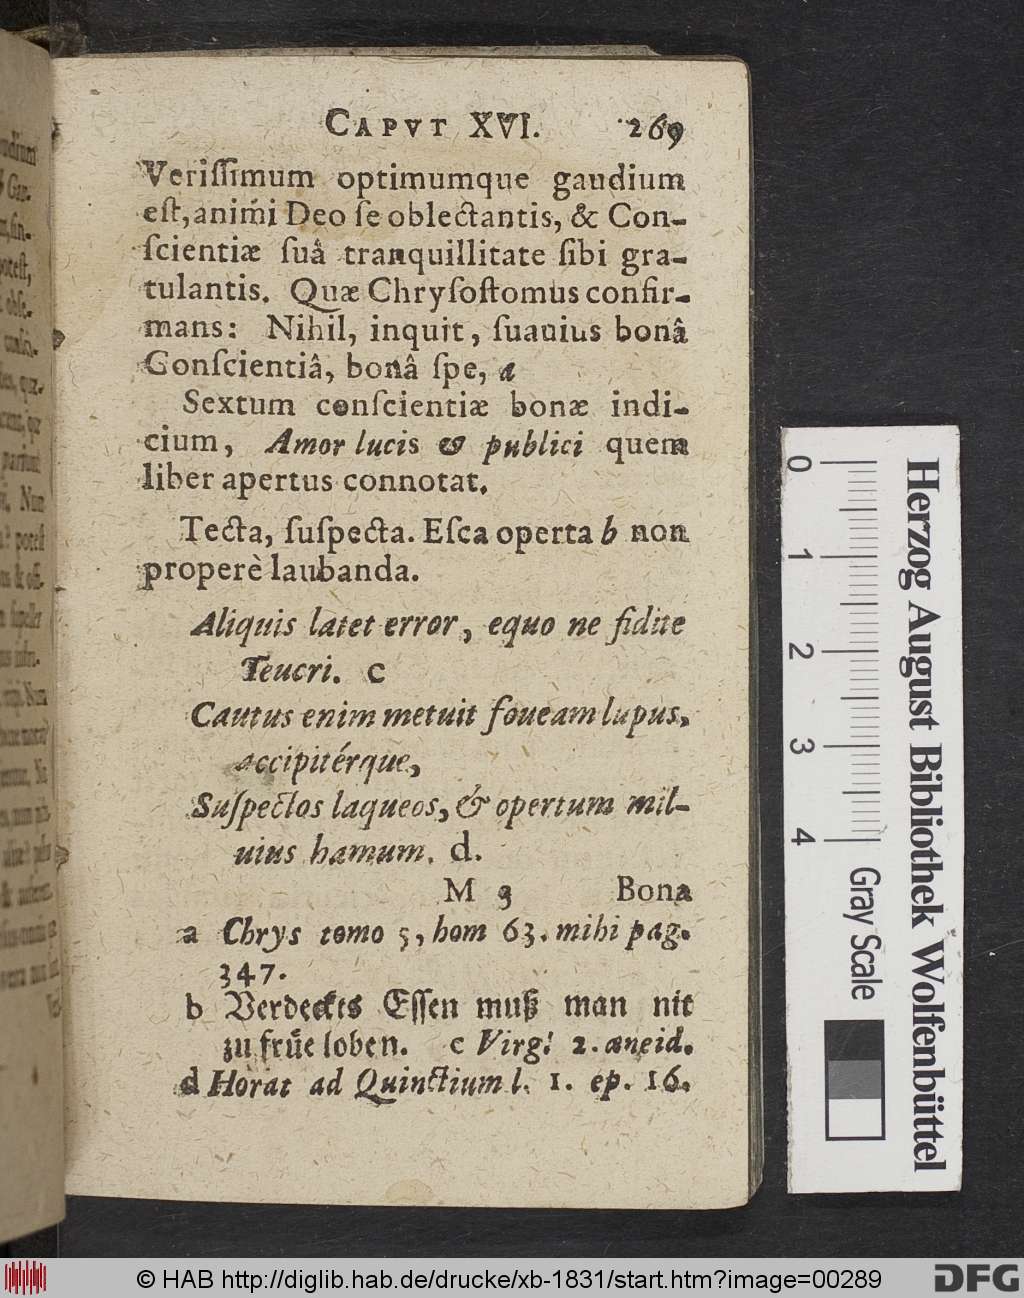 CAPVT XVI. 269
Veriſſimum optimumque gaudium
eſt, animi Deo ſe oblectantis, & Con-
ſcientiæ ſuâ tranquillitate ſibi gra-
tulantis. Quæ Chryſoſtomus confir-
mans: Nihil, inquit, ſuauius bonâ
Conſcientiâ, bonâ ſpe, a
Sextum conſcientiæ bonæ indi-
cium, Amor lucis & publici quem
liber apertus connotat.
Tecta, ſuſpecta. Eſca operta b non
properè laubanda.
Aliquis latet error, equo ne fidite
Teucri. c
Cautus enim metuit foueam lupus,
accipitérque,
Suſpectos laqueos, & opertum mil-
uius hamum. d.
M 3 Bona
a Chrys tomo 5, hom 63. mihi pag.
347.
b Verdeckts Eſſen muß man nit
zu frůe loben. c Virg: 2. aneid.
d Horat ad Quinctium l. 1. ep. 16.
0
1
2
3
4
Gray Scale
Herzog August Bibliothek Wolfenbüttel
© HAB http://diglib.hab.de/drucke/xb-1831/start.htm?image=00289
DFG